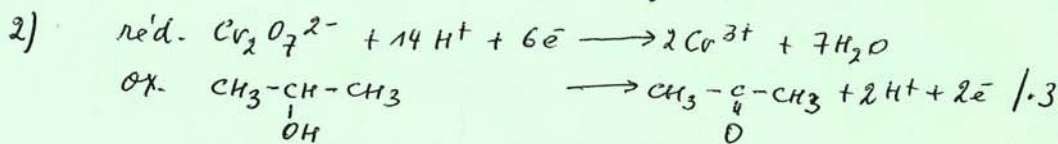 2) réd. Cr₂O₇²⁻ + 14 H⁺ + 6e⁻ ⟶ 2 Cr³⁺ + 7H₂O
ox. CH₃-CH-CH₃ ⟶ CH₃-C-CH₃ + 2 H⁺ + 2e⁻ /·3
OH O